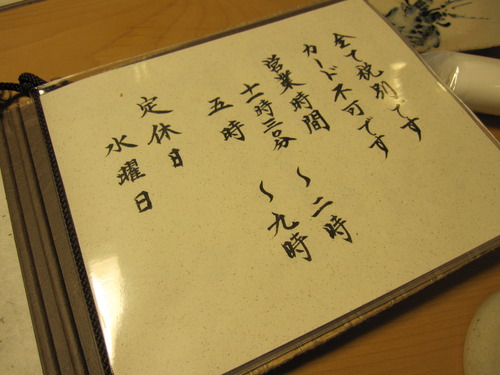 全て税別です
カード不可です
営業時間
十一時三〇分 〜 二時
五時 〜 九時
定休日
水曜日